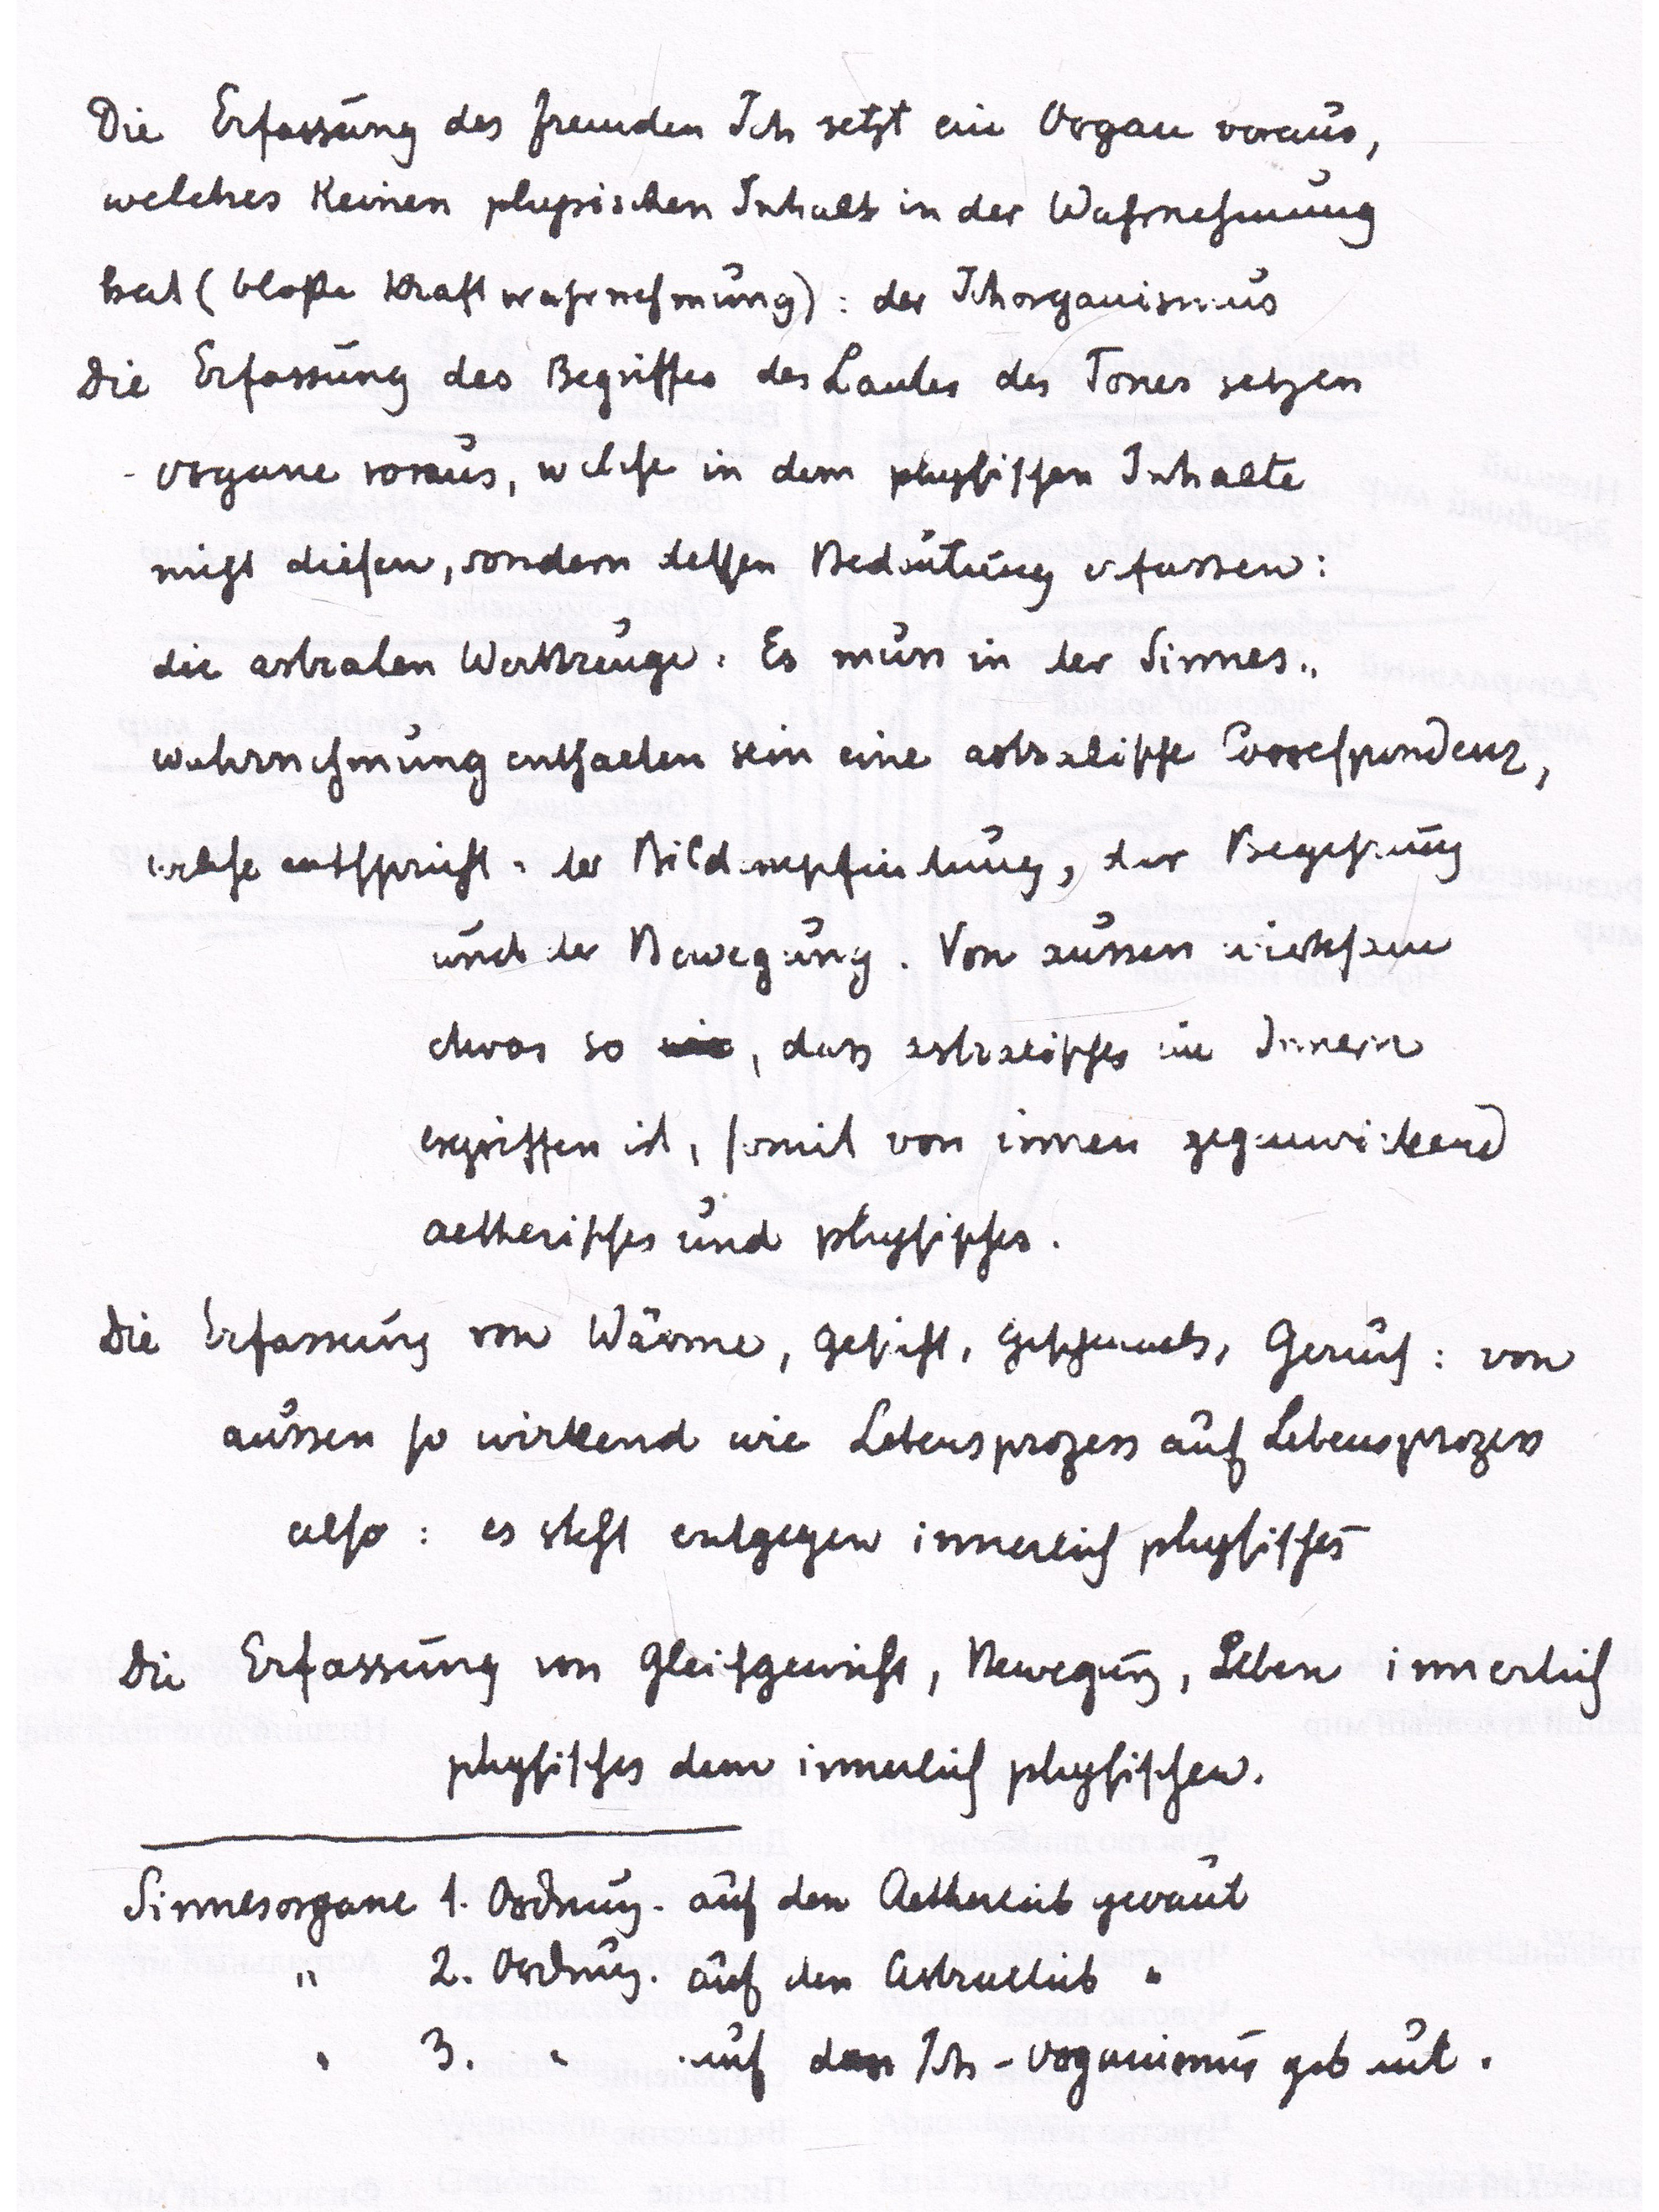 Die Erfassung des fremden Ich setzt ein Organ voraus,
welches keinen physischen Inhalt in der Wahrnehmung
hat (bloße Kraftwahrnehmung): der Ichorganismus
Die Erfassung des Begriffes des Lautes des Tones setzen
- Organe voraus, welche in dem physischen Inhalte
nicht diesen, sondern dessen Bedeutung erfassen:
die astralen Werkzeuge. Es muss in der Sinnes-
wahrnehmung enthalten sein eine astralische Correspondenz,
welche entspricht: der Bildempfindung, der
und der Bewegung. Von aussen wirksam
etwas so, dass astralisches im Innern
ergriffen ist, somit von innen gegenwirkend
aetherisches und physisches.
Die Erfassung von Wärme, Gesicht, Geschmack, Geruch: von
aussen so wirkend wie Lebensprozess auf Lebensprozess
also: es steht entgegen innerlich physisches
Die Erfassung von Gleichgewicht, Bewegung, Leben innerlich
physisches dem innerlich physischen.
Sinnesorgane 1. Ordnung. auf den Aetherleib gebaut
" 2. Ordnung. auf den Astralleib "
" 3. " auf den Ich-Organismus gebaut.